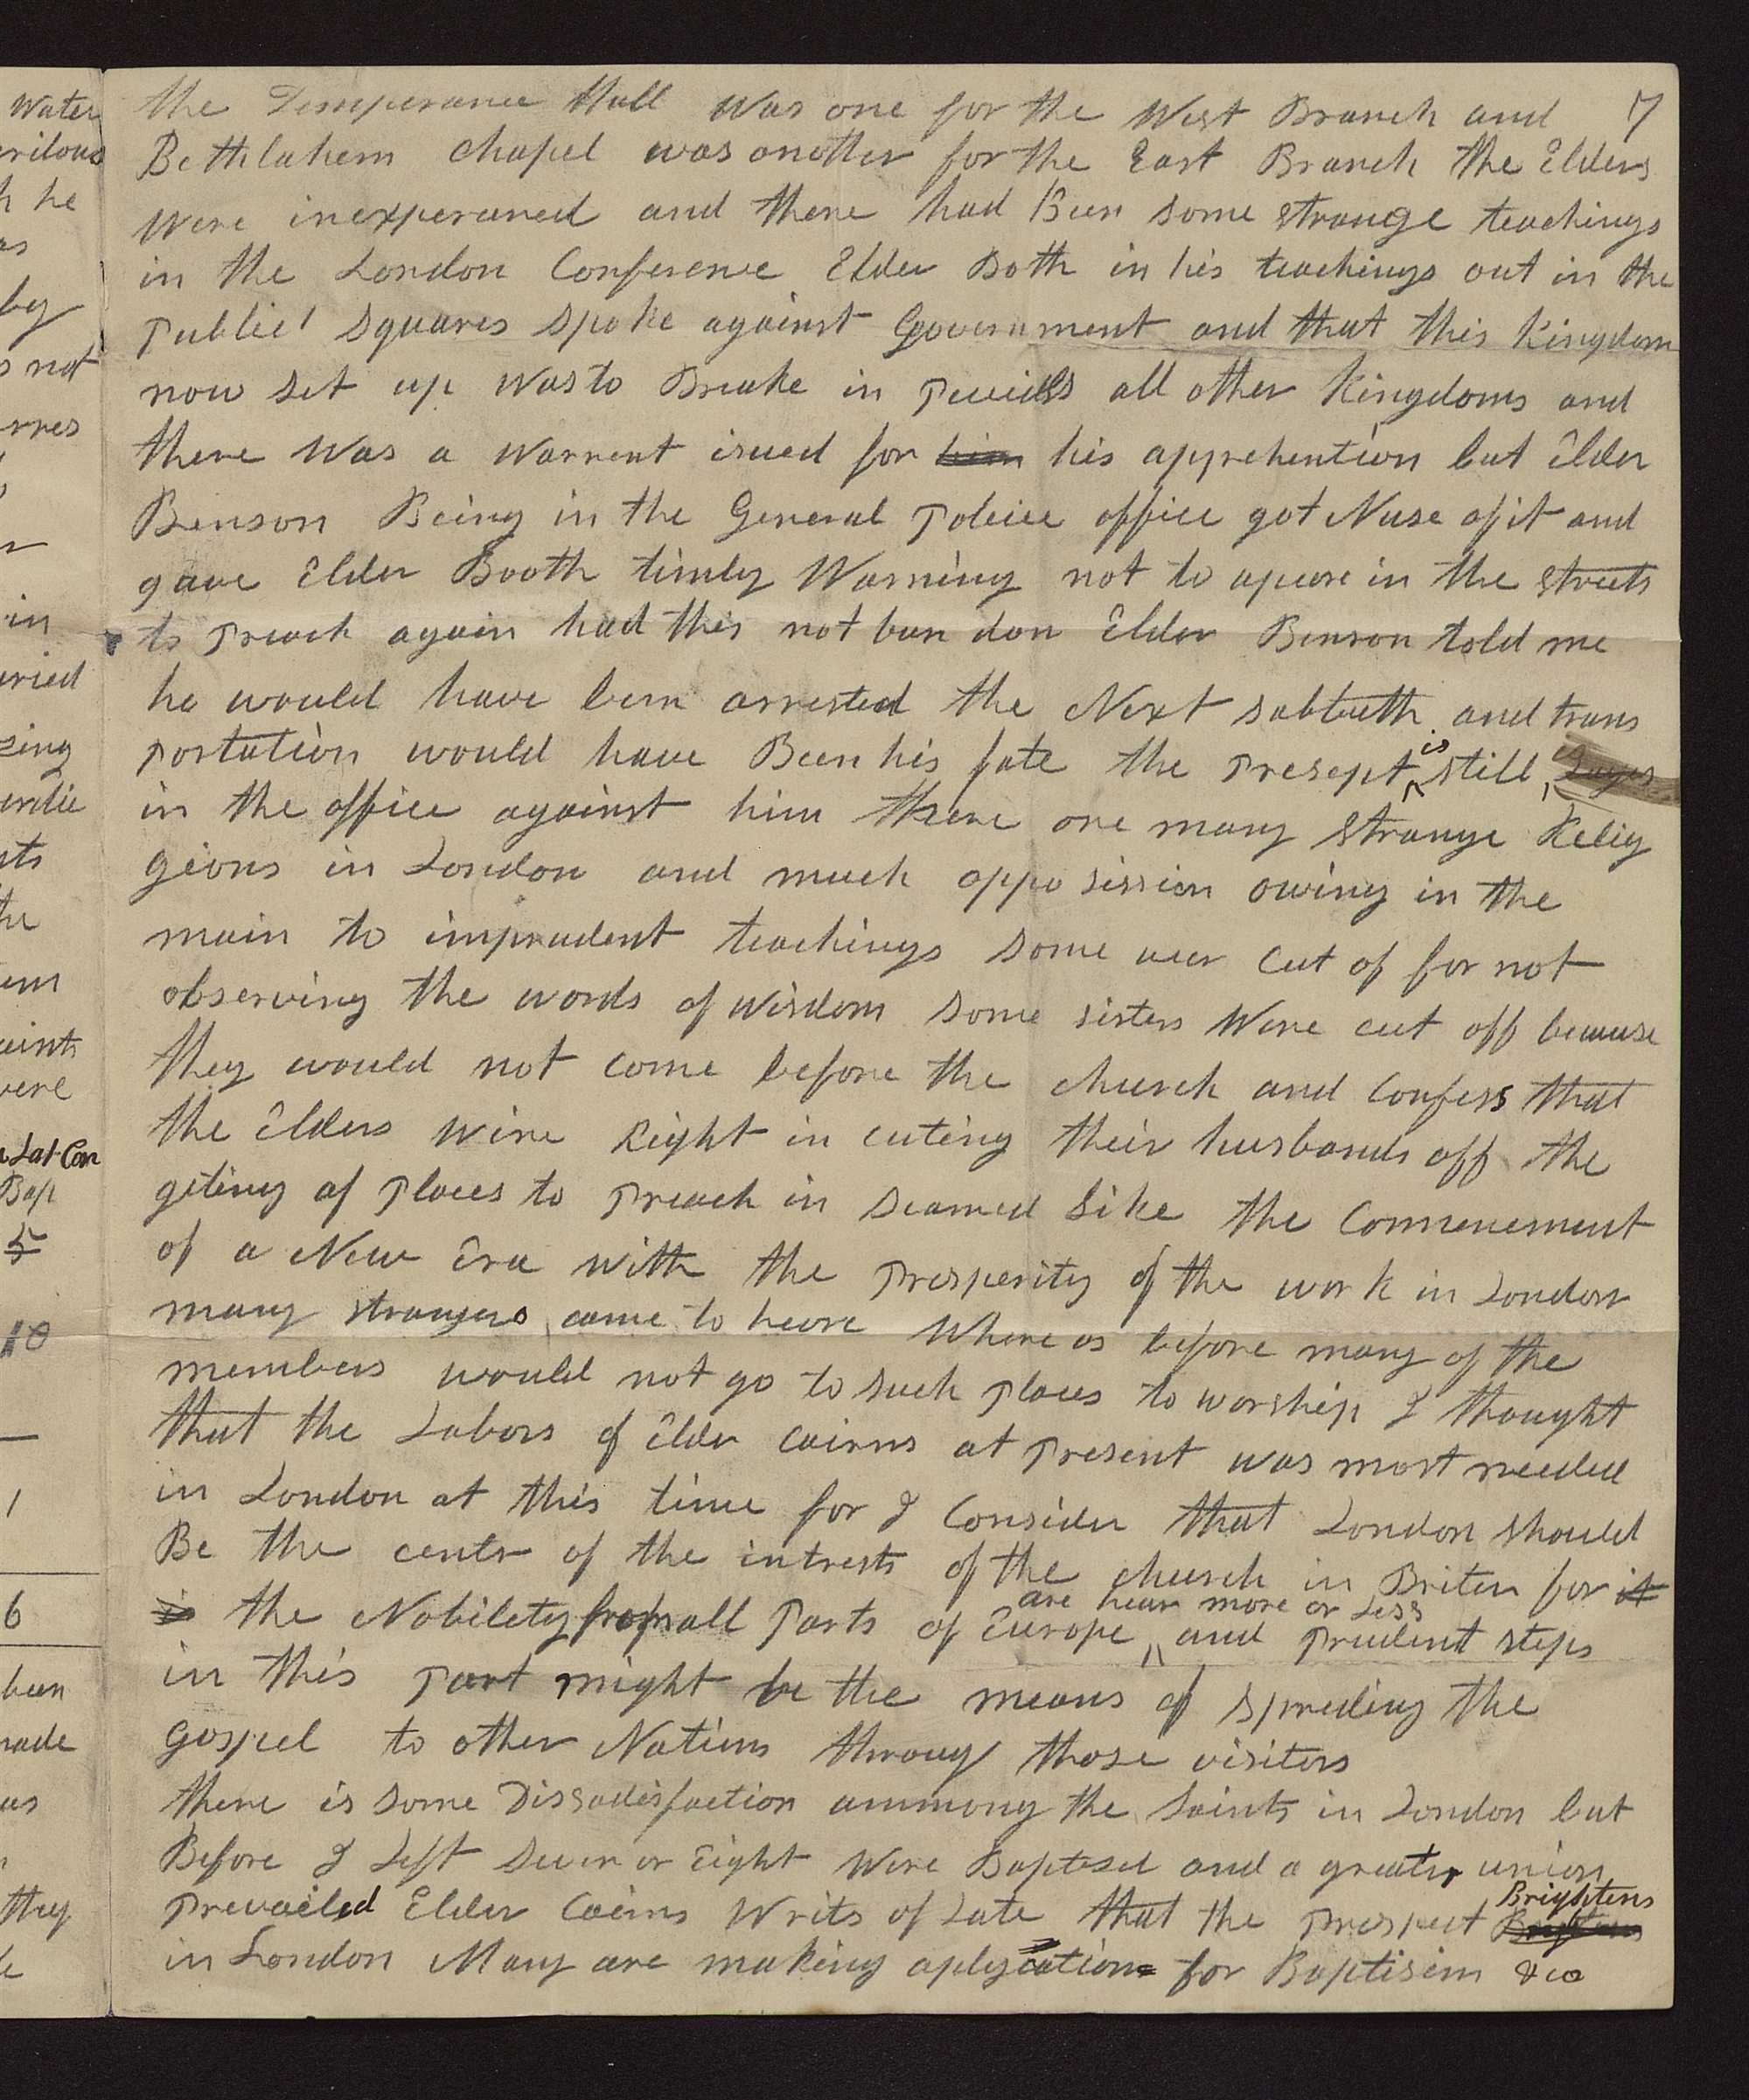 7
the Temperance Hall was one for the West Branch and
Bethlahem chapel was another for the East Branch the Elders
Were inexperaned and there had Been some strange teachings
in the London Conference Elder Both in his teachings out in the
Public squares spoke against Government and that this Kingdom
now set up was to Breake in all other Kingdoms and
there Was a Warrent isued for him his apprehention but Elder
Benson Being in the General Poleice office got Nuse of it and
gave Elder Booth timly Warning not to apeare in the streets
to Preach again had this not ban don Elder Benson told me
he would have ben arrested the Next sabbath and trans
portation would have Been his fate the Presept is still Layes
in the office against him there are many strange Relig
gions in London and much oppo sission owing in the
main to imprudent teachings some wer Cut of for not
observing the words of wisdom some sisters Were cut off because
they would not come before the church and Confess that
the Elders Were Right in cuting their husbands off the
giting of Places to Preach in seamed Like the Commencment
of a New Era with the Prosperity of the work in London
many strangers came to heare Where as before many of the
members would not go to such Places to worship I thought
that the Labors of Elder Cairns at Present was most needed
in London at this time for I Consider that London should
Be the centr of the intrests of the church in Briten for it
is the Nobilety from all Parts of Europe are hear more or Less and Prudent steps
in this Part might be the means of spreding the
Gospel to other Nations throug those visitors
there is some Dissadisfaction ammong the Saints in London but
Before I Left seven or Eight Were Baptised and a greater union
Prevailed Elder Cairns Writs of Late that the Prospect Brightens
in London Many are making aplycation for Baptisim &co
Water
h he
as
by
not
in
ints
10
1
6
been
as
they